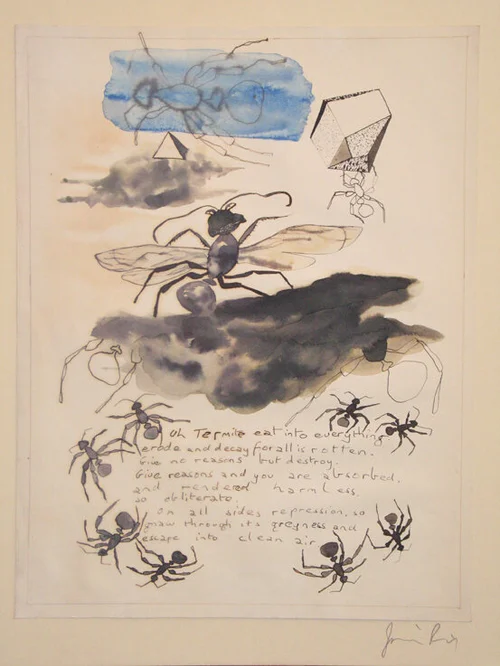 Oh Termite eat into everything
erode and decay for all is rotten.
Give no reasons but destroy.
Give reasons and you are absorbed,
and rendered harmless.
so obliterate.
On all sides repression, so
gnaw through its greyness and
escape into clean air